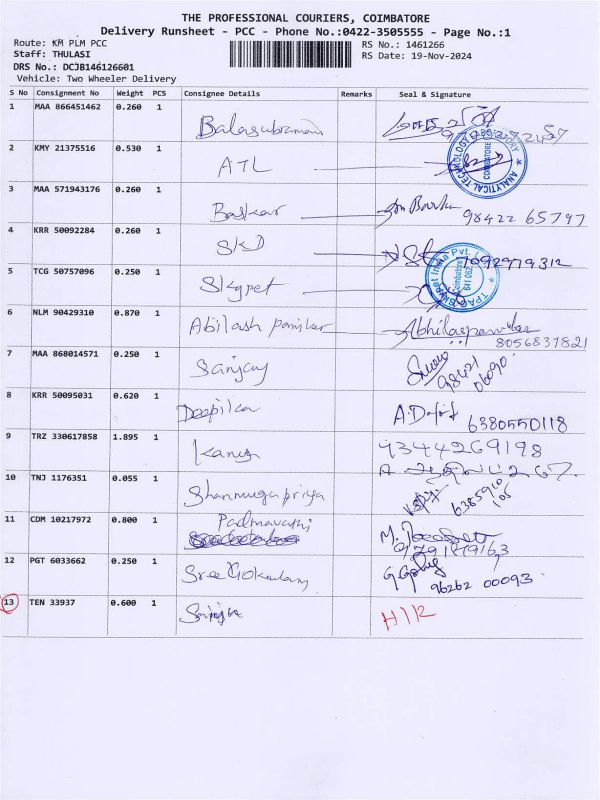 THE PROFESSIONAL COURIERS, COIMBATORE
Delivery Runsheet - PCC - Phone No.:0422-3505555 - Page No.:1
Route: KM PLM PCC
RS No.: 1461266
Staff: THULASI
RS Date: 19-Nov-2024
DRS No.: DCJB146126601
Vehicle: Two Wheeler Delivery
S No Consignment No Weight PCS Consignee Details Remarks Seal & Signature
1 MAA 866451462 0.260 1 Balasubramani
2 KMY 21375516 0.530 1 ATL
ANALYTICAL TECHNOLOGY LABORATORY COIMBATORE
3 MAA 571943176 0.260 1 Baskar
98422 65797
4 KRR 50092284 0.260 1 SKD
5 TCG 50757096 0.250 1 Skypet
Skypet India Pvt. Coimbatore
6 NLM 90429310 0.870 1 Abilash panikar
8056831821
7 MAA 868014571 0.250 1 Sanjay
8 KRR 50095031 0.620 1 Deepika
6380550118
9 TRZ 330617858 1.895 1
9344269198
10 TNJ 1176351 0.055 1 Shanmuga priya
11 CDM 10217972 0.800 1 Padmavathi
12 PGT 6033662 0.250 1 Sree Gokulam
96262 00093
13 TEN 33937 0.600 1